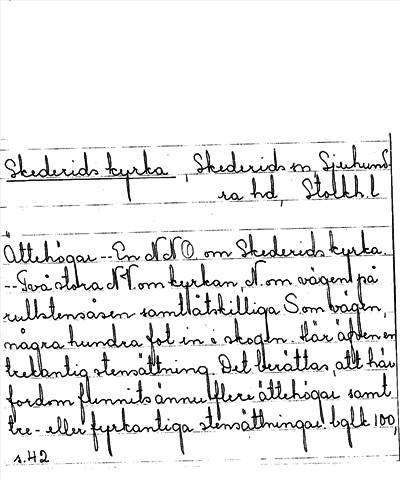 Skederids kyrka, Skederids sn, Sjuhund-
ra hd, Stolkh.l
Ättehögar--En NNO om Skederids kyrka.
--Två stora NV. om kyrkan, N. om vägen på
rullstensåsen samt åtskilliga S om vägen,
några hundra fot in i skogen. Här äfven en
trekantig stensättning. Det berättas, att här
fordom funnits ännu flere ättehögar samt
tre- eller fyrkantiga stensättningar. bglk 100,
s.42